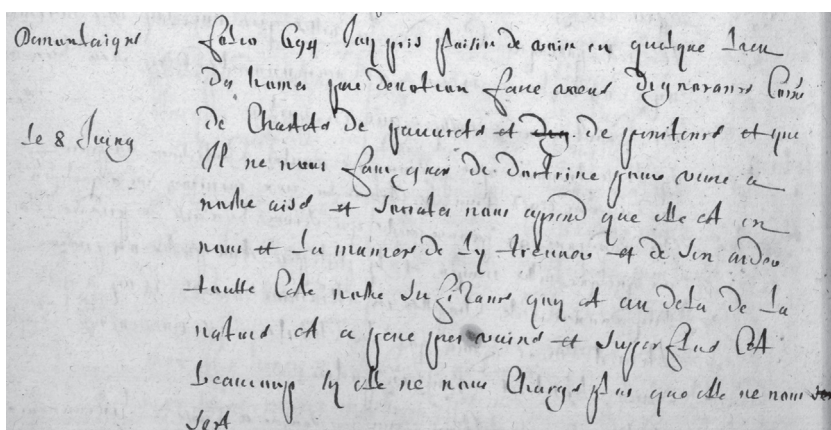 Demontaigne
le 8 Juing
folio 694 Jay pris plaisir de voir en quelque lieu
des homes par devotion faire veus dignorance Comē
de Chasteté de pauvreté et de penitence et que
Il ne nous faut guere de doctrine pour vivre a
nostre aise et Socrates nous aprend que elle est en
nous et la maniere de ly trouver et de sen aider
toutte Cete nostre sufisance quy est au dela de la
nature est a peu pres vaine et superflue Cest
beaucoup sy elle ne nous Charge plus que elle ne nous
sert